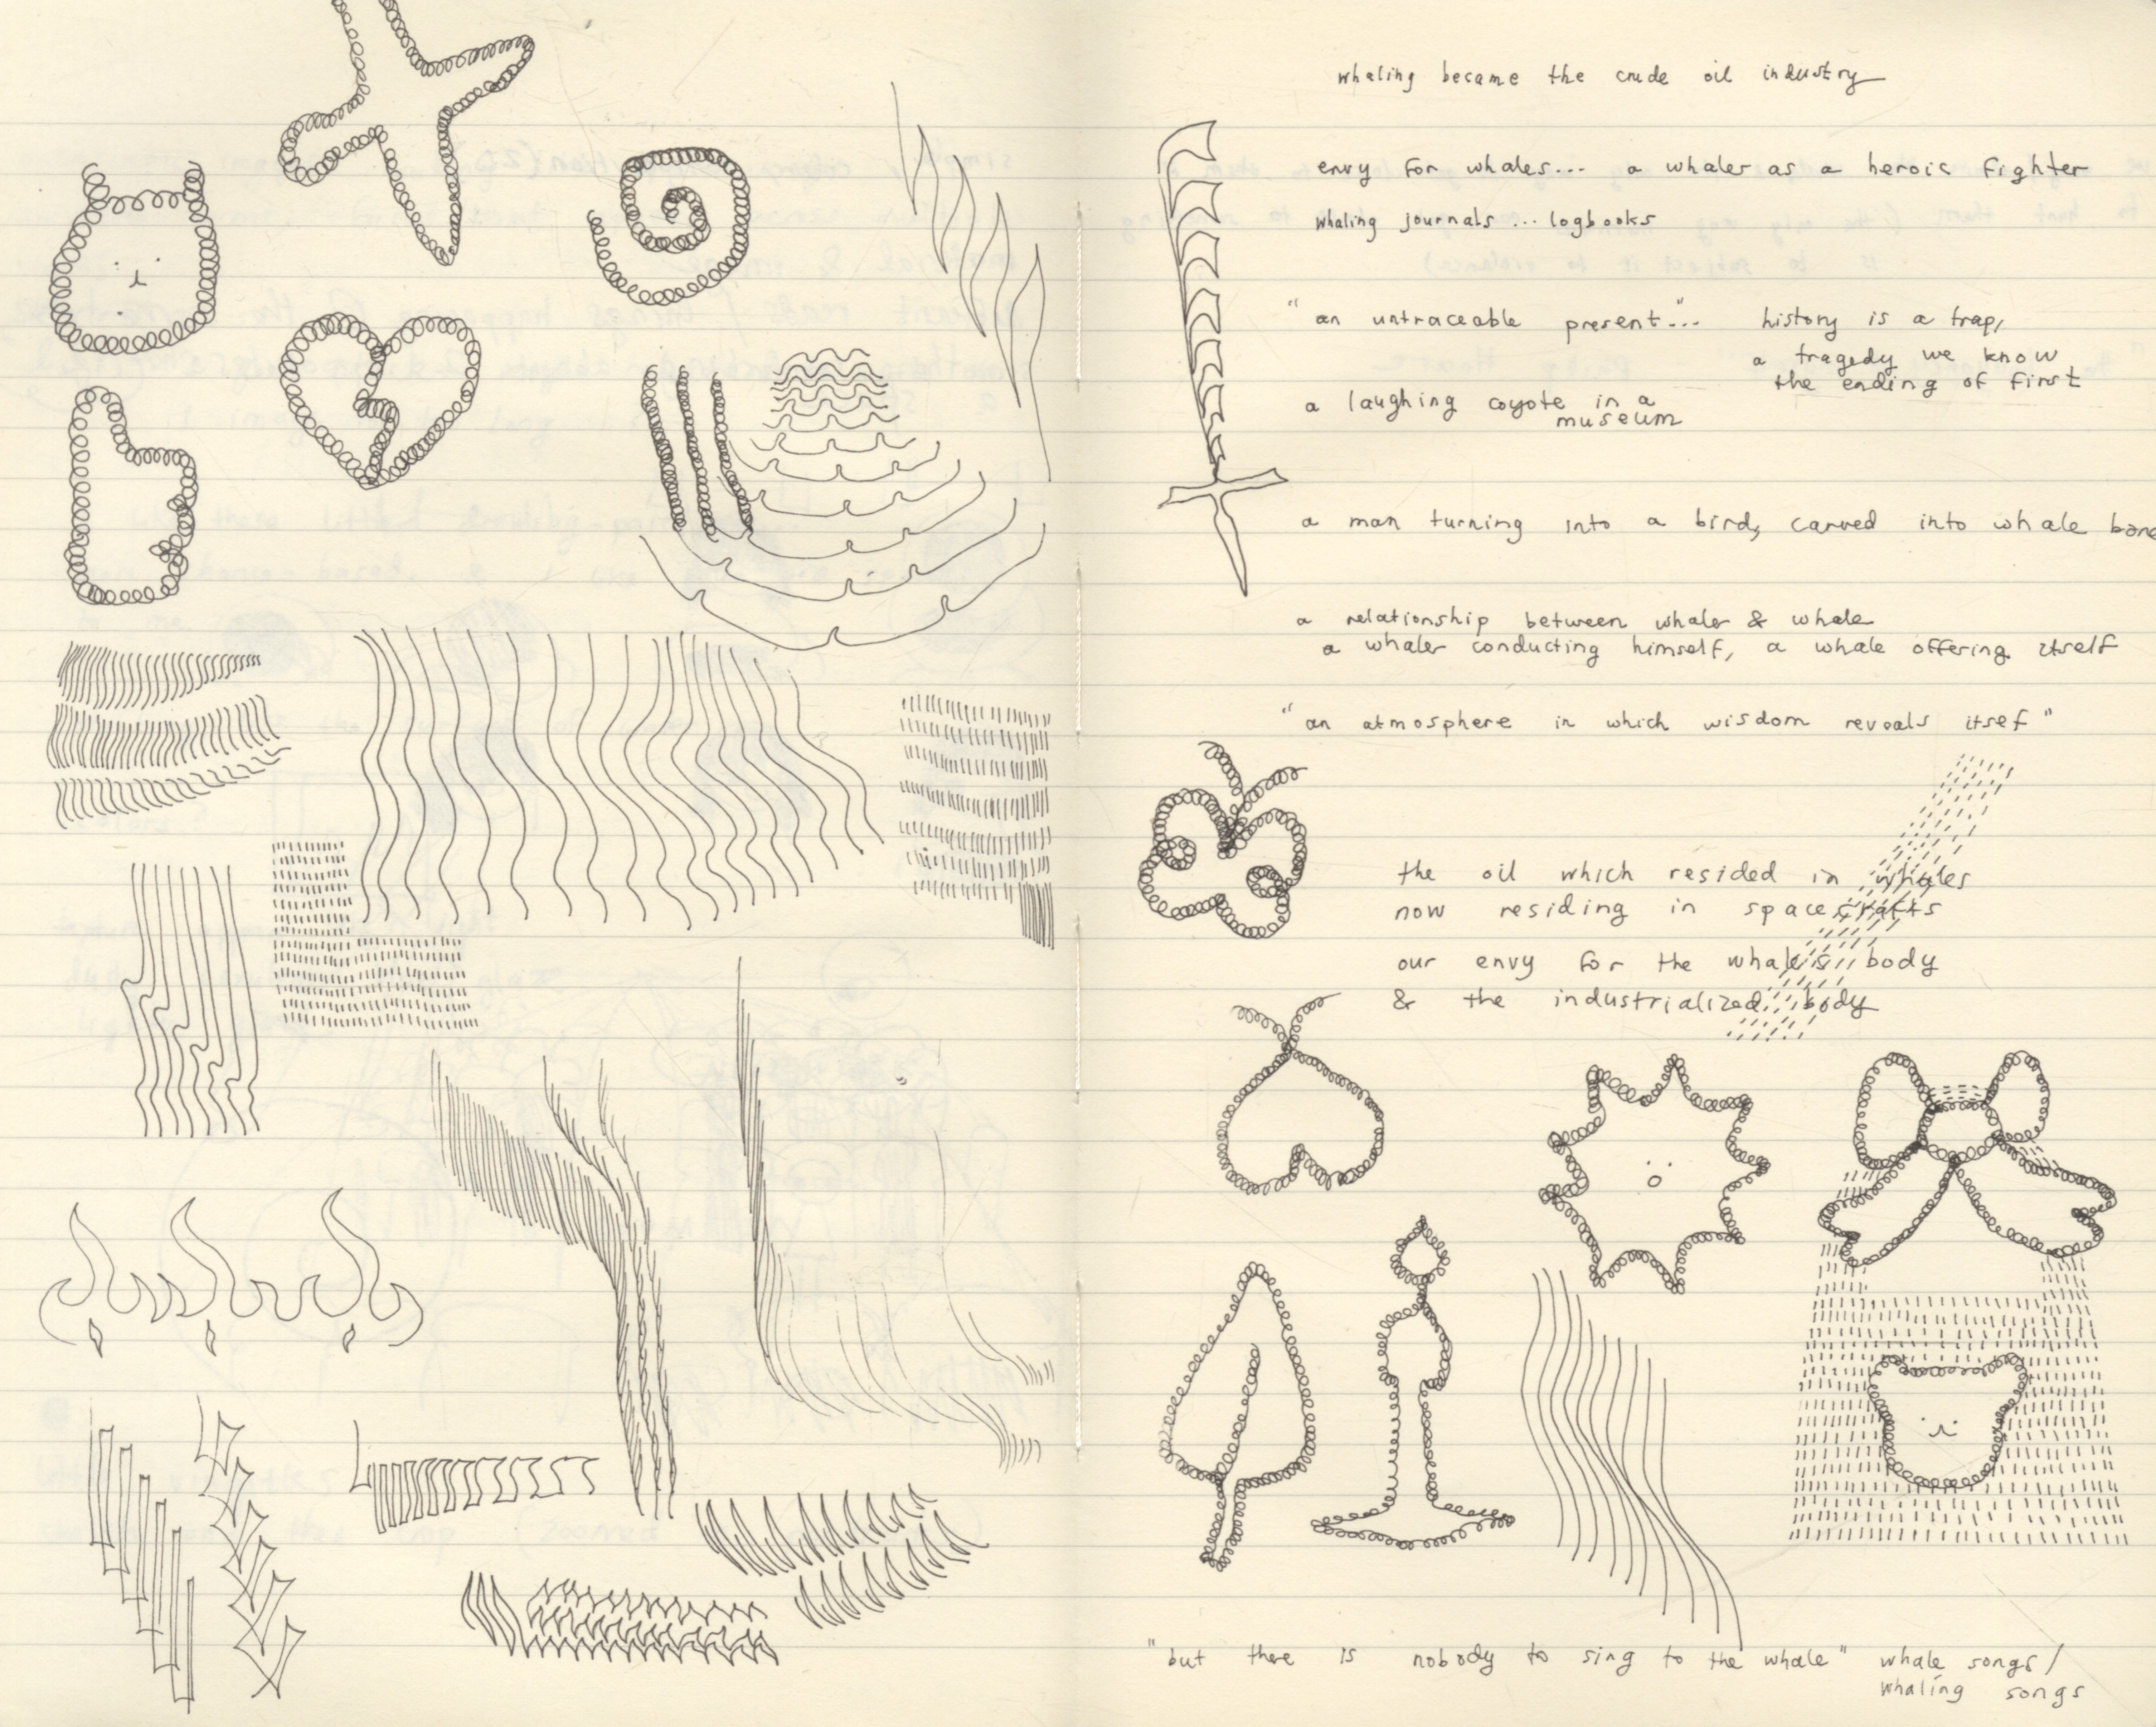 whaling became the crude oil industry
envy for whales... a whaler as a heroic fighter
whaling journals ... logbooks
"an untraceable present"... history is a trap,
a tragedy we know
the ending of first
a laughing coyote in a
museum
a man turning into a bird, carved into whale bone
a relationship between whaler & whale
a whaler conducting himself, a whale offering itself
"an atmosphere in which wisdom reveals itsef"
the oil which resided in whales
now residing in spacecrafts
our envy for the whale's body
& the industrialized body
"but there is nobody to sing to the whale" whale songs/
whaling songs